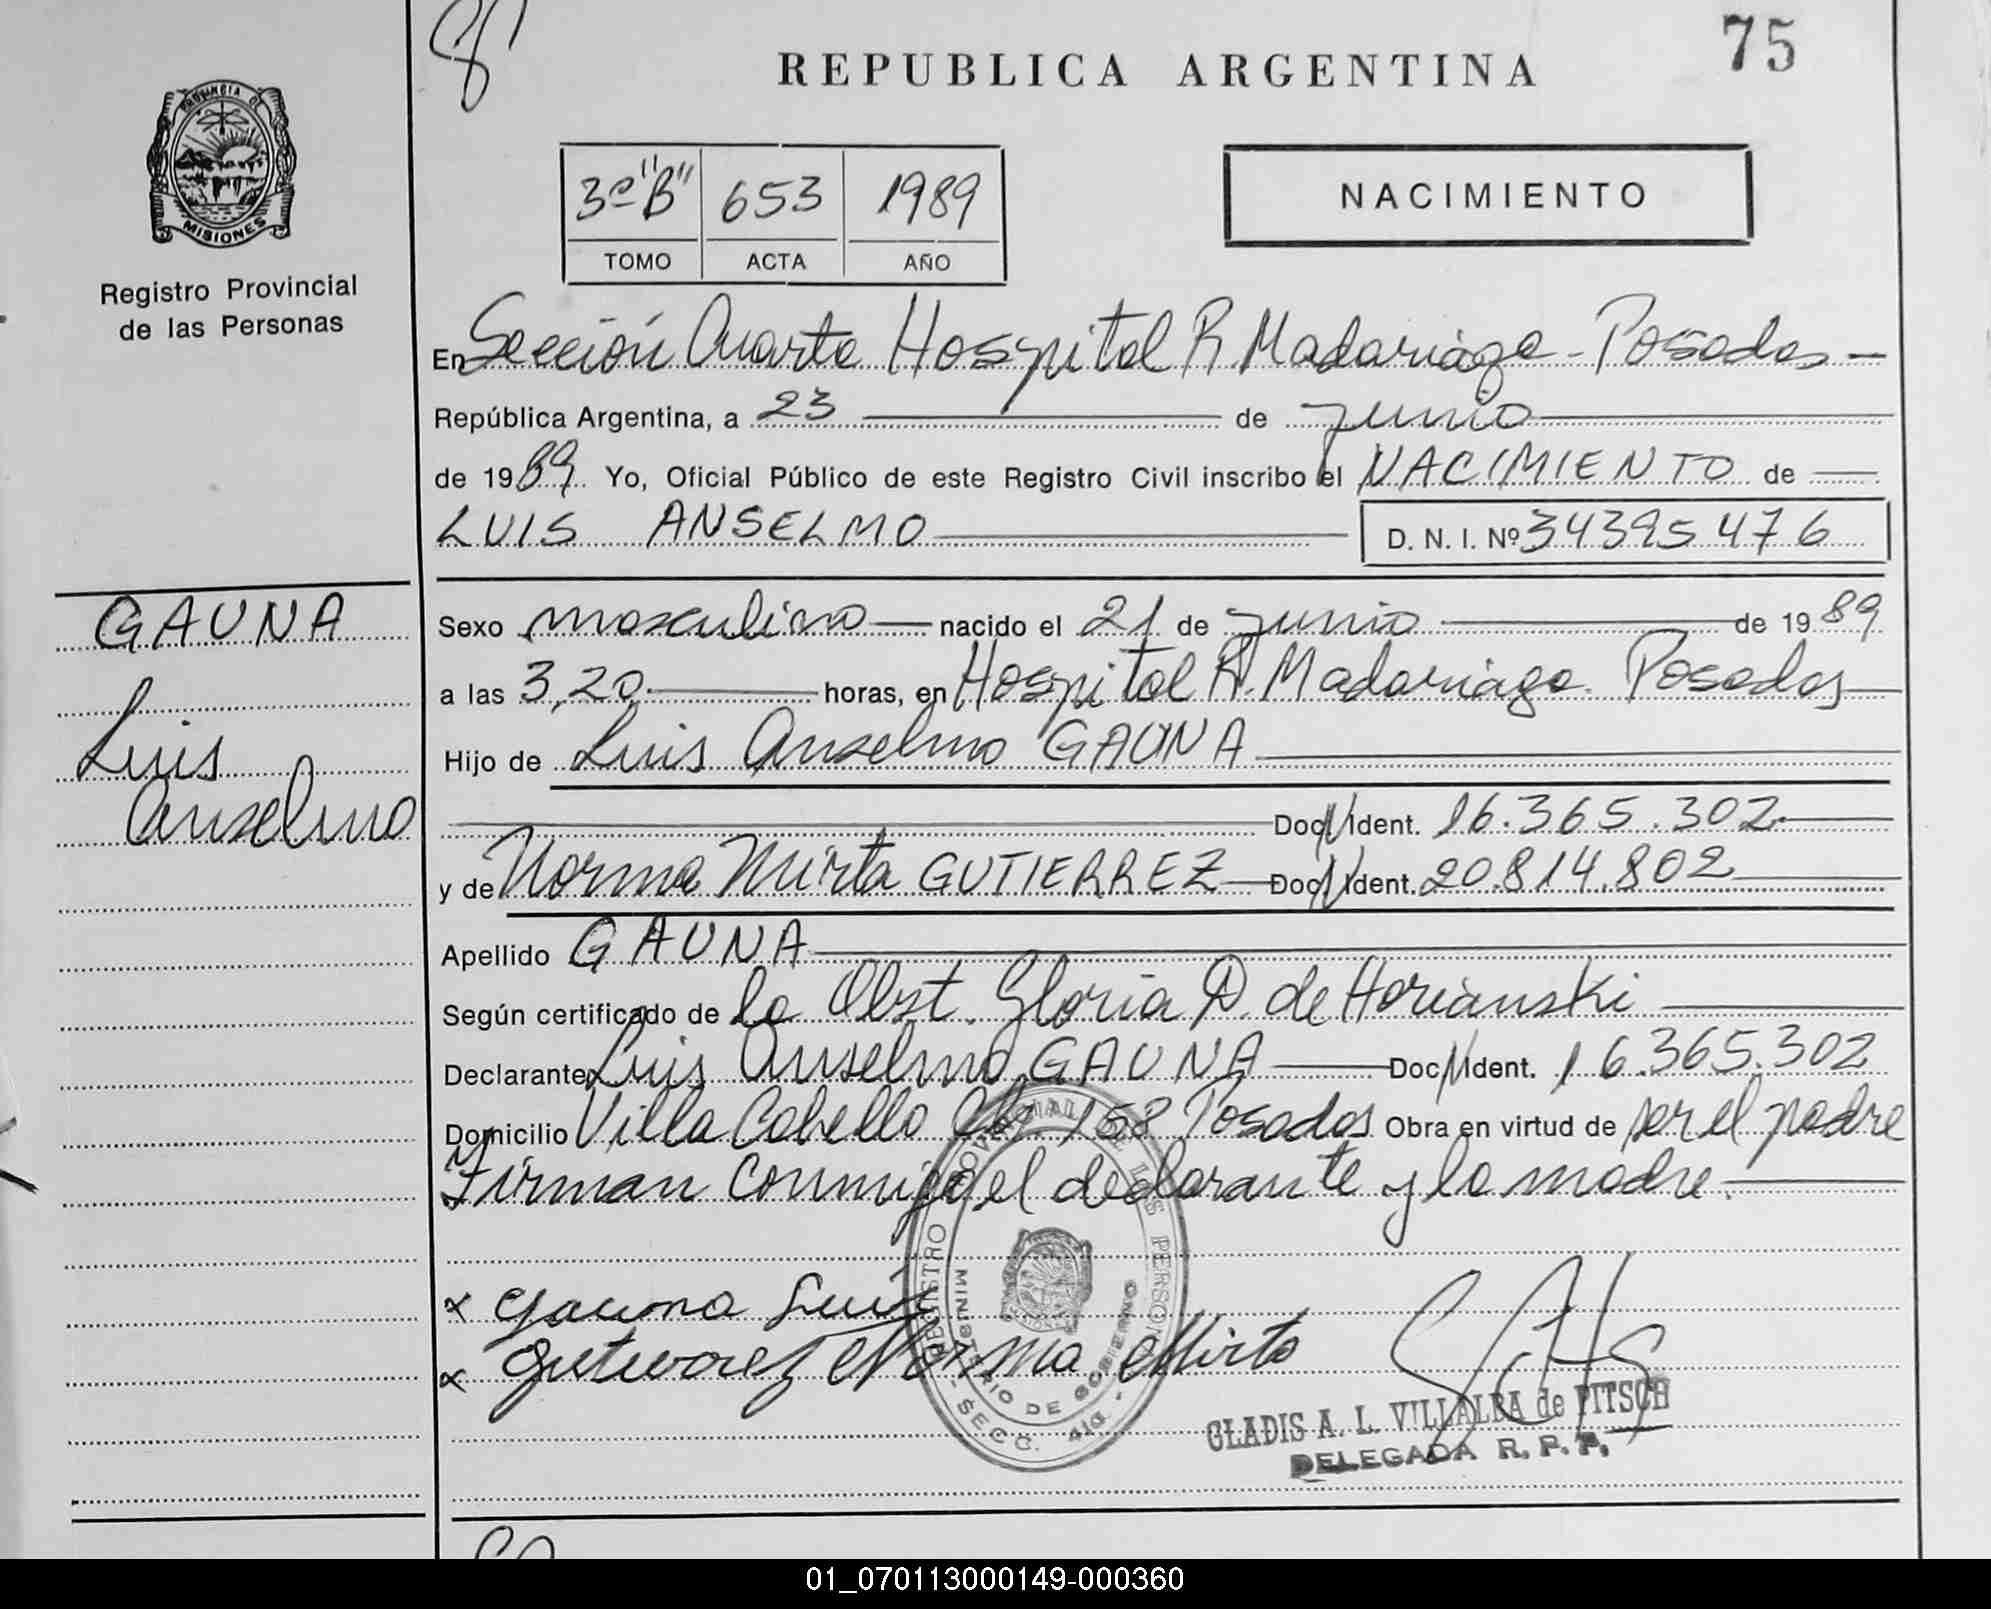 75
REPUBLICA ARGENTINA
PROVINCIA DE
MISIONES
Registro Provincial
de las Personas
3º "B" 653 1989
TOMO ACTA AÑO
NACIMIENTO
En Sección Cuarta Hospital R. Madariaga - Posadas -
República Argentina, a 23 de junio
de 1989. Yo, Oficial Público de este Registro Civil inscribo el NACIMIENTO de
LUIS ANSELMO D. N. I. Nº 34395476
GAUNA
Luis
Anselmo
Sexo masculino nacido el 21 de junio de 1989
a las 3,20 horas, en Hospital R. Madariaga. Posadas
Hijo de Luis Anselmo GAUNA
Doc. Ident. 16.365.302
y de Norma Mirta GUTIERREZ Doc. Ident. 20.814.802
Apellido GAUNA
Según certificado de la Obst. Gloria D. de Horianski
Declarante Luis Anselmo GAUNA Doc. Ident. 16.365.302
Domicilio Villa Cabello 158 Posadas Obra en virtud de ser el padre
Firman conmigo el declarante y la madre.
x Gauna Luis
x Gutierrez Norma Mirta
REGISTRO PROVINCIAL DE LAS PERSONAS
MINISTERIO DE GOBIERNO
- SECC. 4ta. -
GLADIS A. L. VILLALBA de PITSCH
DELEGADA R. P. P.
01_070113000149-000360